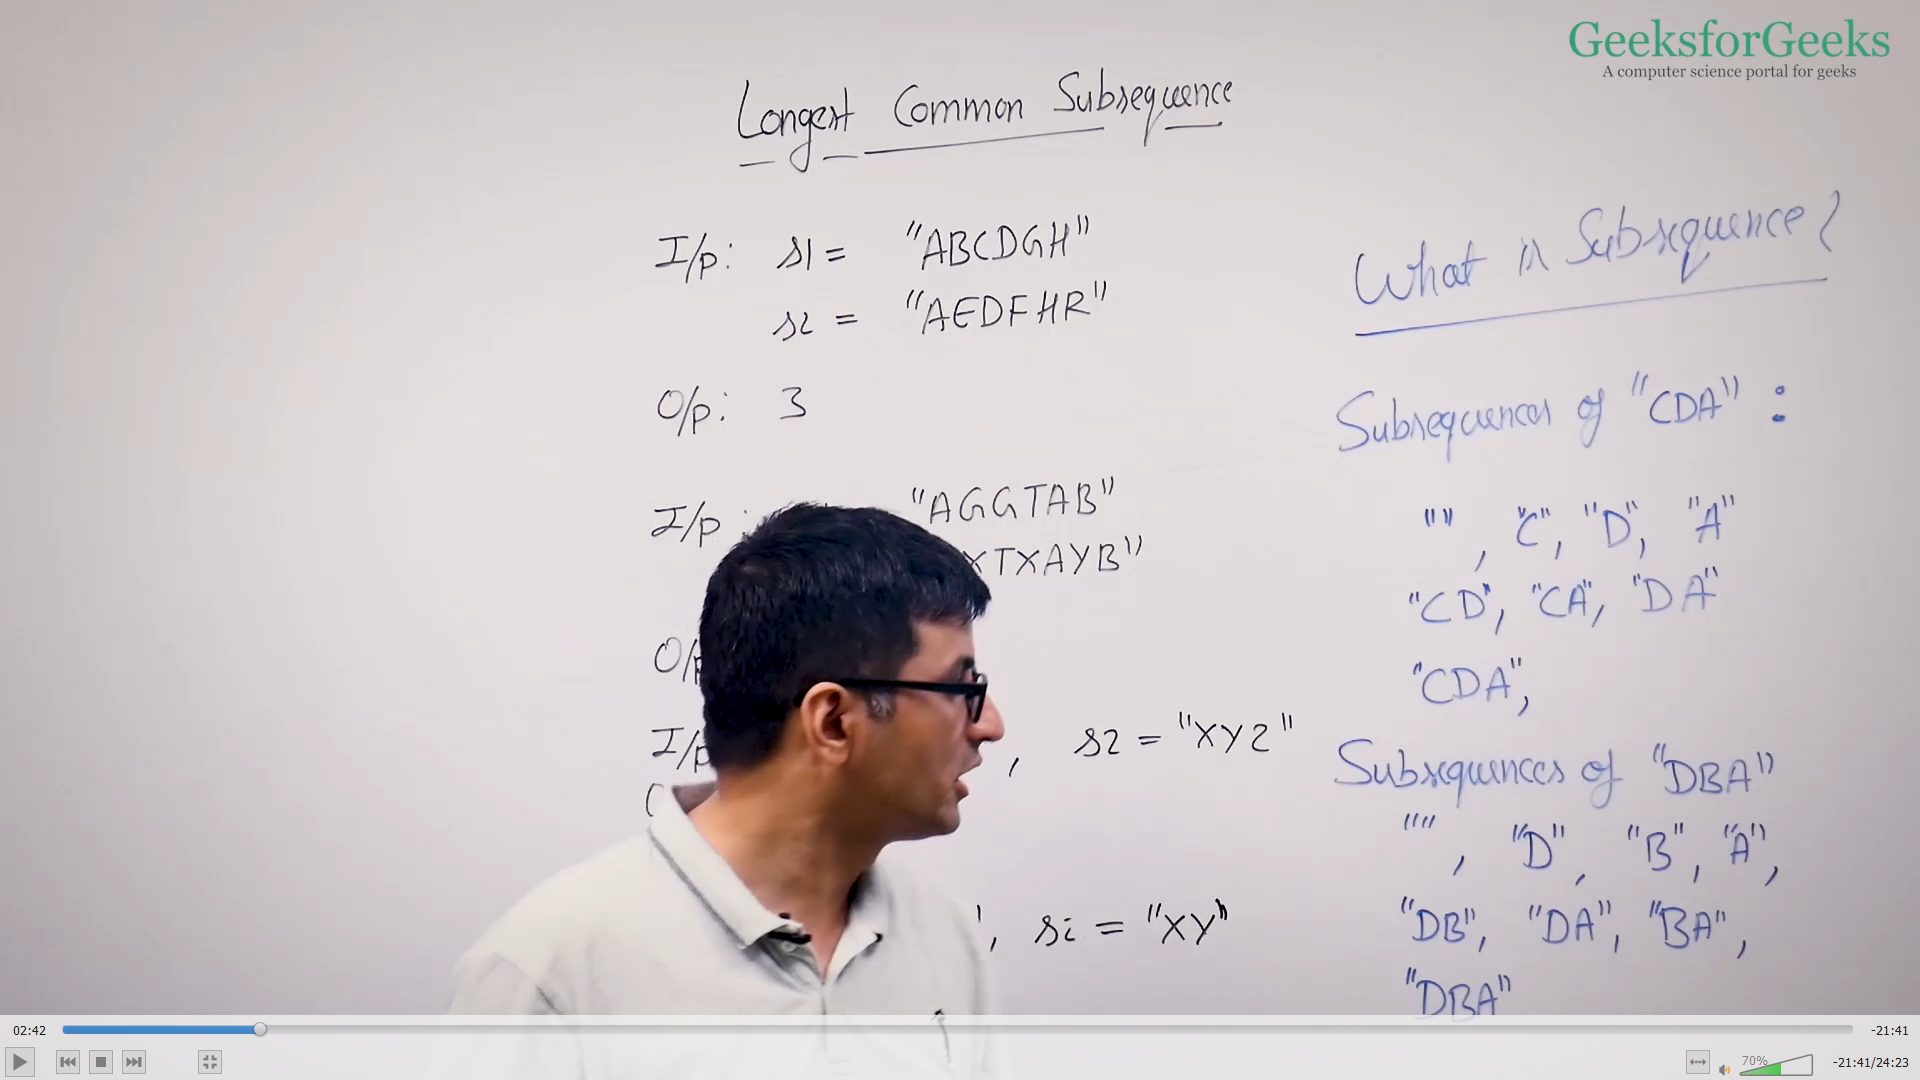 GeeksforGeeks
A computer science portal for geeks
Longest Common Subsequence
I/p: s1 = "ABCDGH"
s2 = "AEDFHR"
O/p: 3
I/p : "AGGTAB"
XTXAYB"
I/p , s2 = "XYZ"
, s2 = "XY"
What is Subsequence?
Subsequences of "CDA" :
"" , "C", "D", "A"
"CD", "CA", "DA"
"CDA",
Subsequences of "DBA"
"" , "D", "B", "A",
"DB", "DA", "BA",
"DBA"
02:42
-21:41
70%
-21:41/24:23